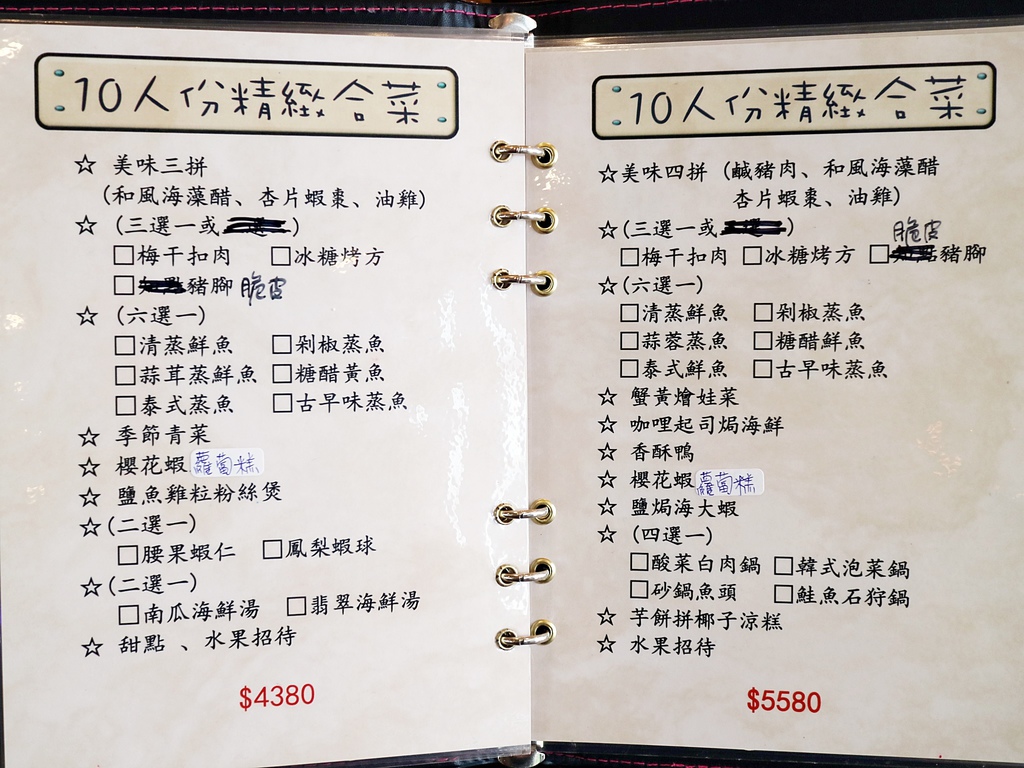 10人份精緻合菜
☆ 美味三拼
(和風海藻醋、杏片蝦棗、油雞)
☆ (三選一或)
□梅干扣肉 □冰糖烤方
□豬腳 脆皮
☆ (六選一)
□清蒸鮮魚 □剁椒蒸魚
□蒜茸蒸鮮魚 □糖醋黃魚
□泰式蒸魚 □古早味蒸魚
☆ 季節青菜
☆ 櫻花蝦蘿蔔糕
☆ 鹽魚雞粒粉絲煲
☆(二選一)
□腰果蝦仁 □鳳梨蝦球
☆(二選一)
□南瓜海鮮湯 □翡翠海鮮湯
☆ 甜點 、水果招待
$4380
10人份精緻合菜
☆美味四拼 (鹹豬肉、和風海藻醋
杏片蝦棗、油雞)
☆(三選一或)
脆皮
□梅干扣肉 □冰糖烤方 □豬腳
☆(六選一)
□清蒸鮮魚 □剁椒蒸魚
□蒜蓉蒸魚 □糖醋鮮魚
□泰式鮮魚 □古早味蒸魚
☆ 蟹黃燴娃菜
☆ 咖哩起司焗海鮮
☆ 香酥鴨
☆ 櫻花蝦蘿蔔糕
☆ 鹽焗海大蝦
☆ (四選一)
□酸菜白肉鍋 □韓式泡菜鍋
□砂鍋魚頭 □鮭魚石狩鍋
☆ 芋餅拼椰子涼糕
☆ 水果招待
$5580